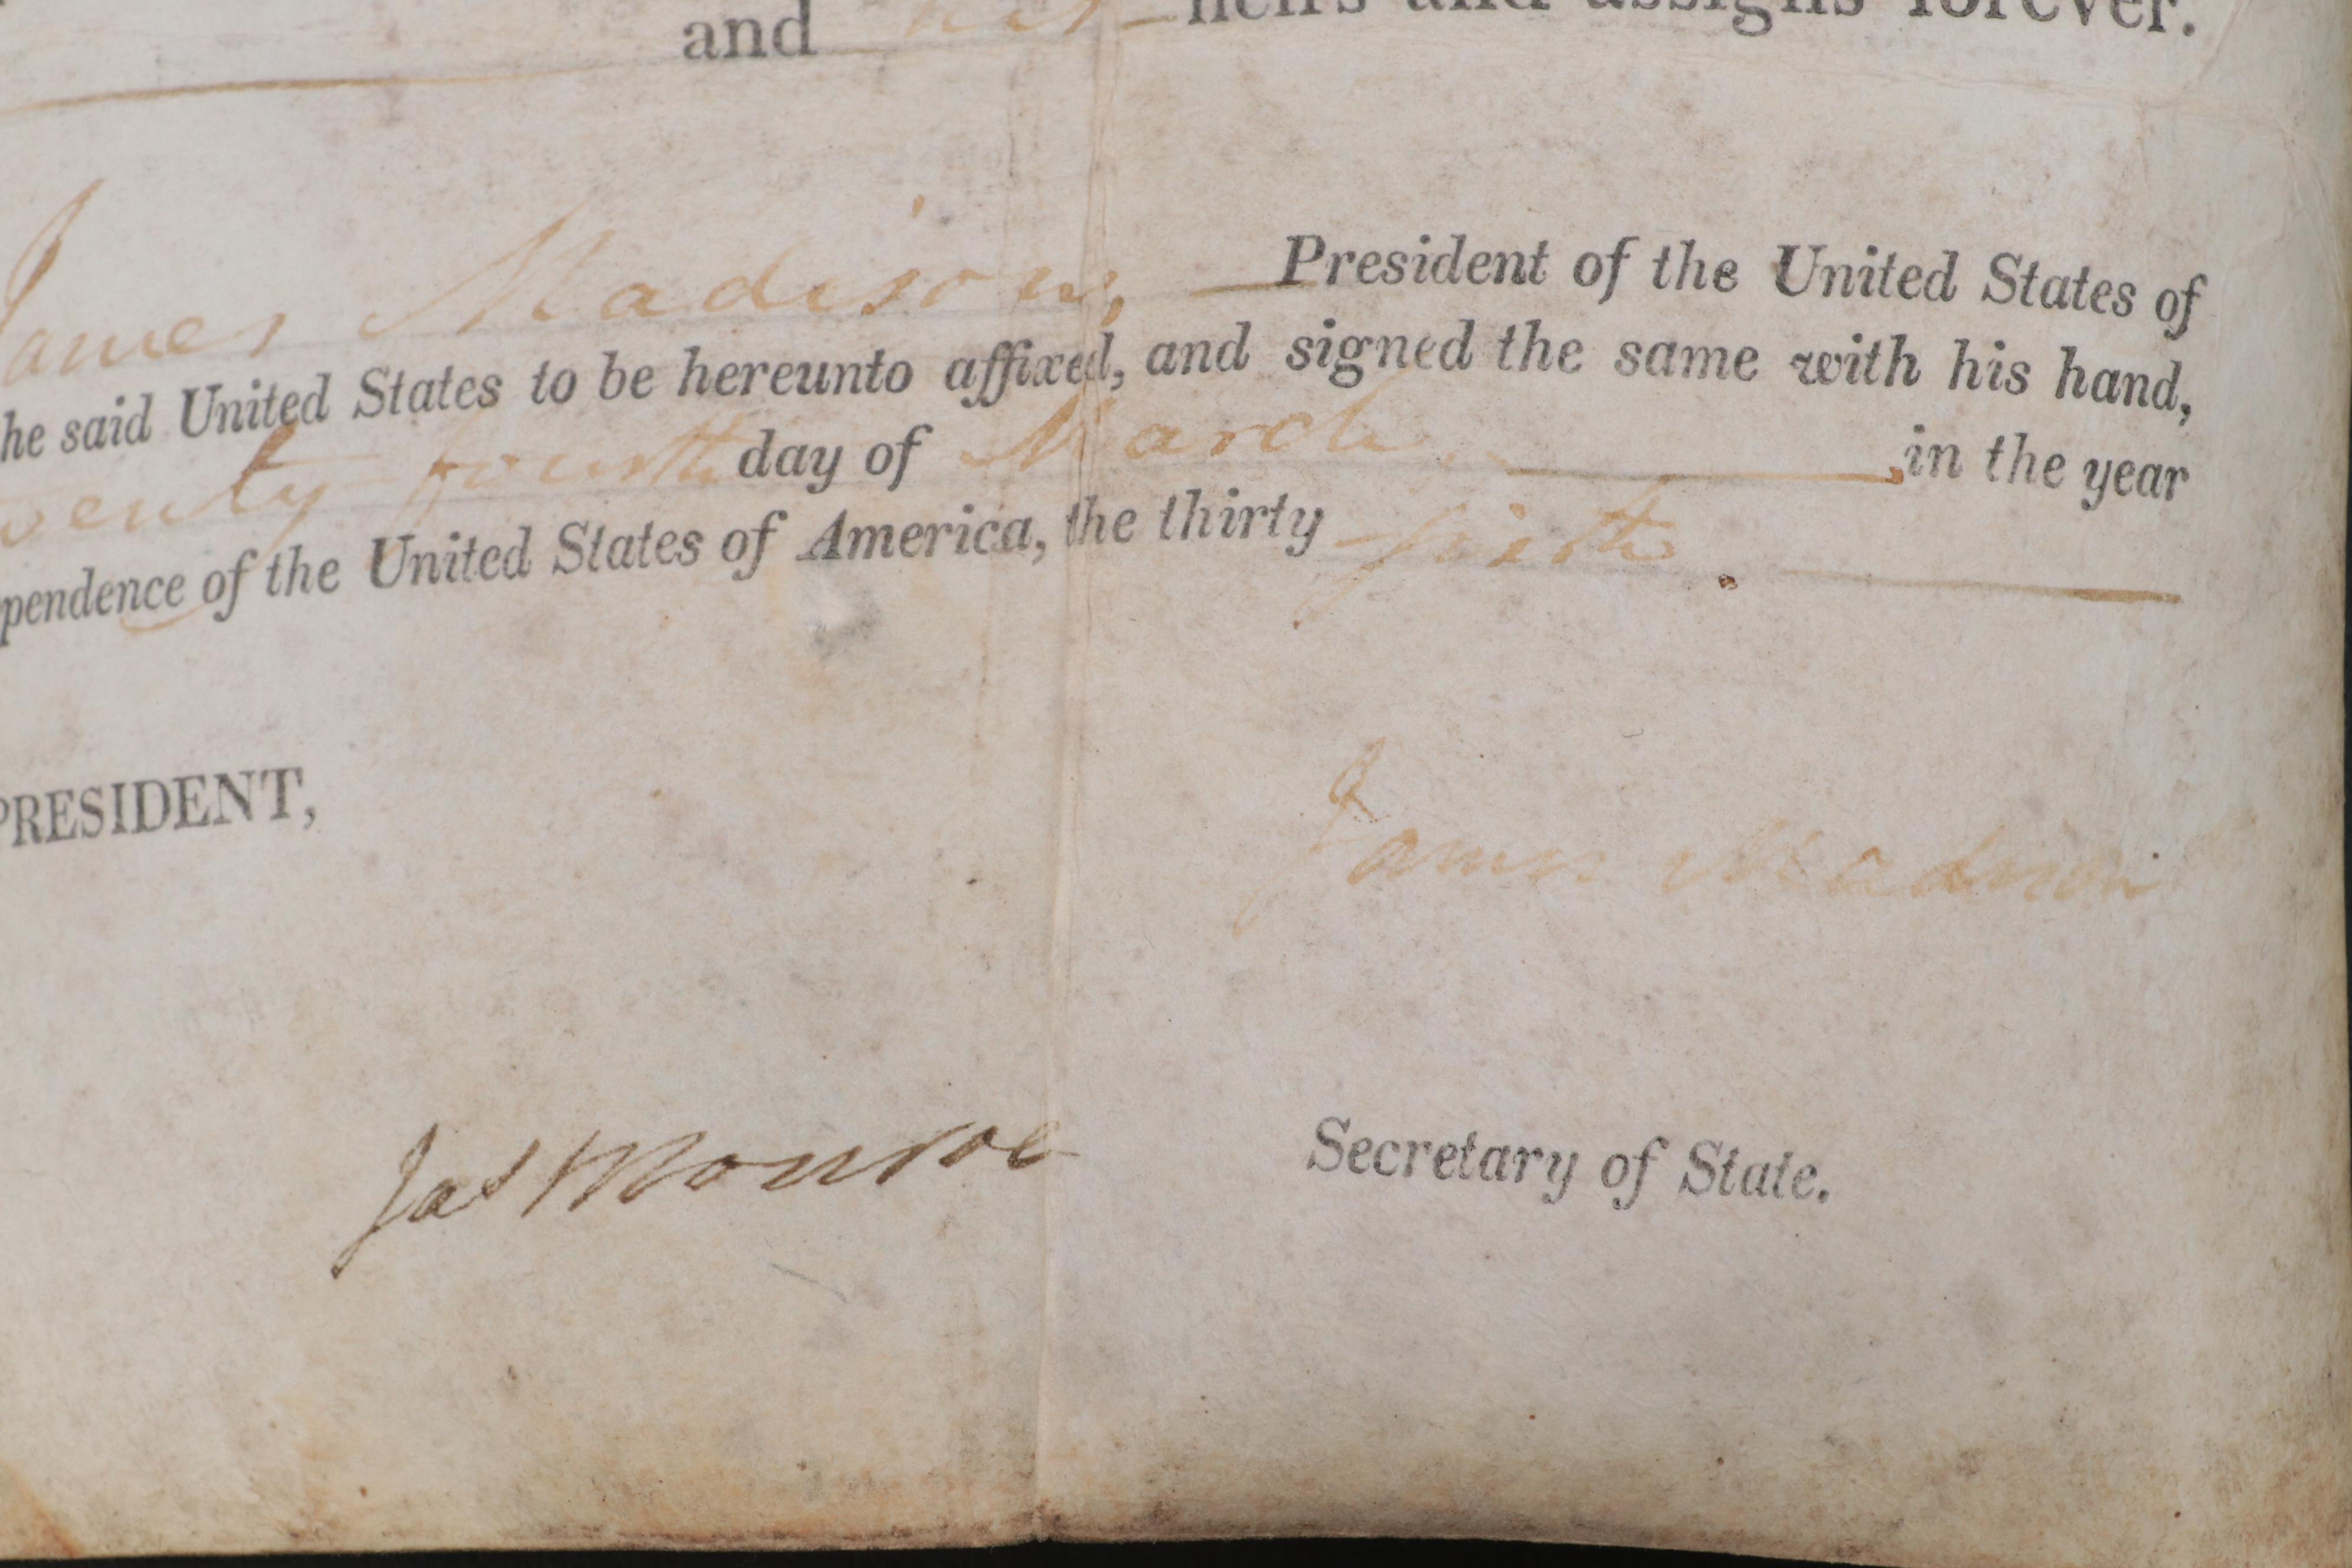 and his heirs and assigns forever.
James Madison, President of the United States of
he said United States to be hereunto affixed, and signed the same with his hand,
wenty fourth day of March , in the year
pendence of the United States of America, the thirty sixth .
PRESIDENT,
James Madison
Jas Monroe Secretary of State.